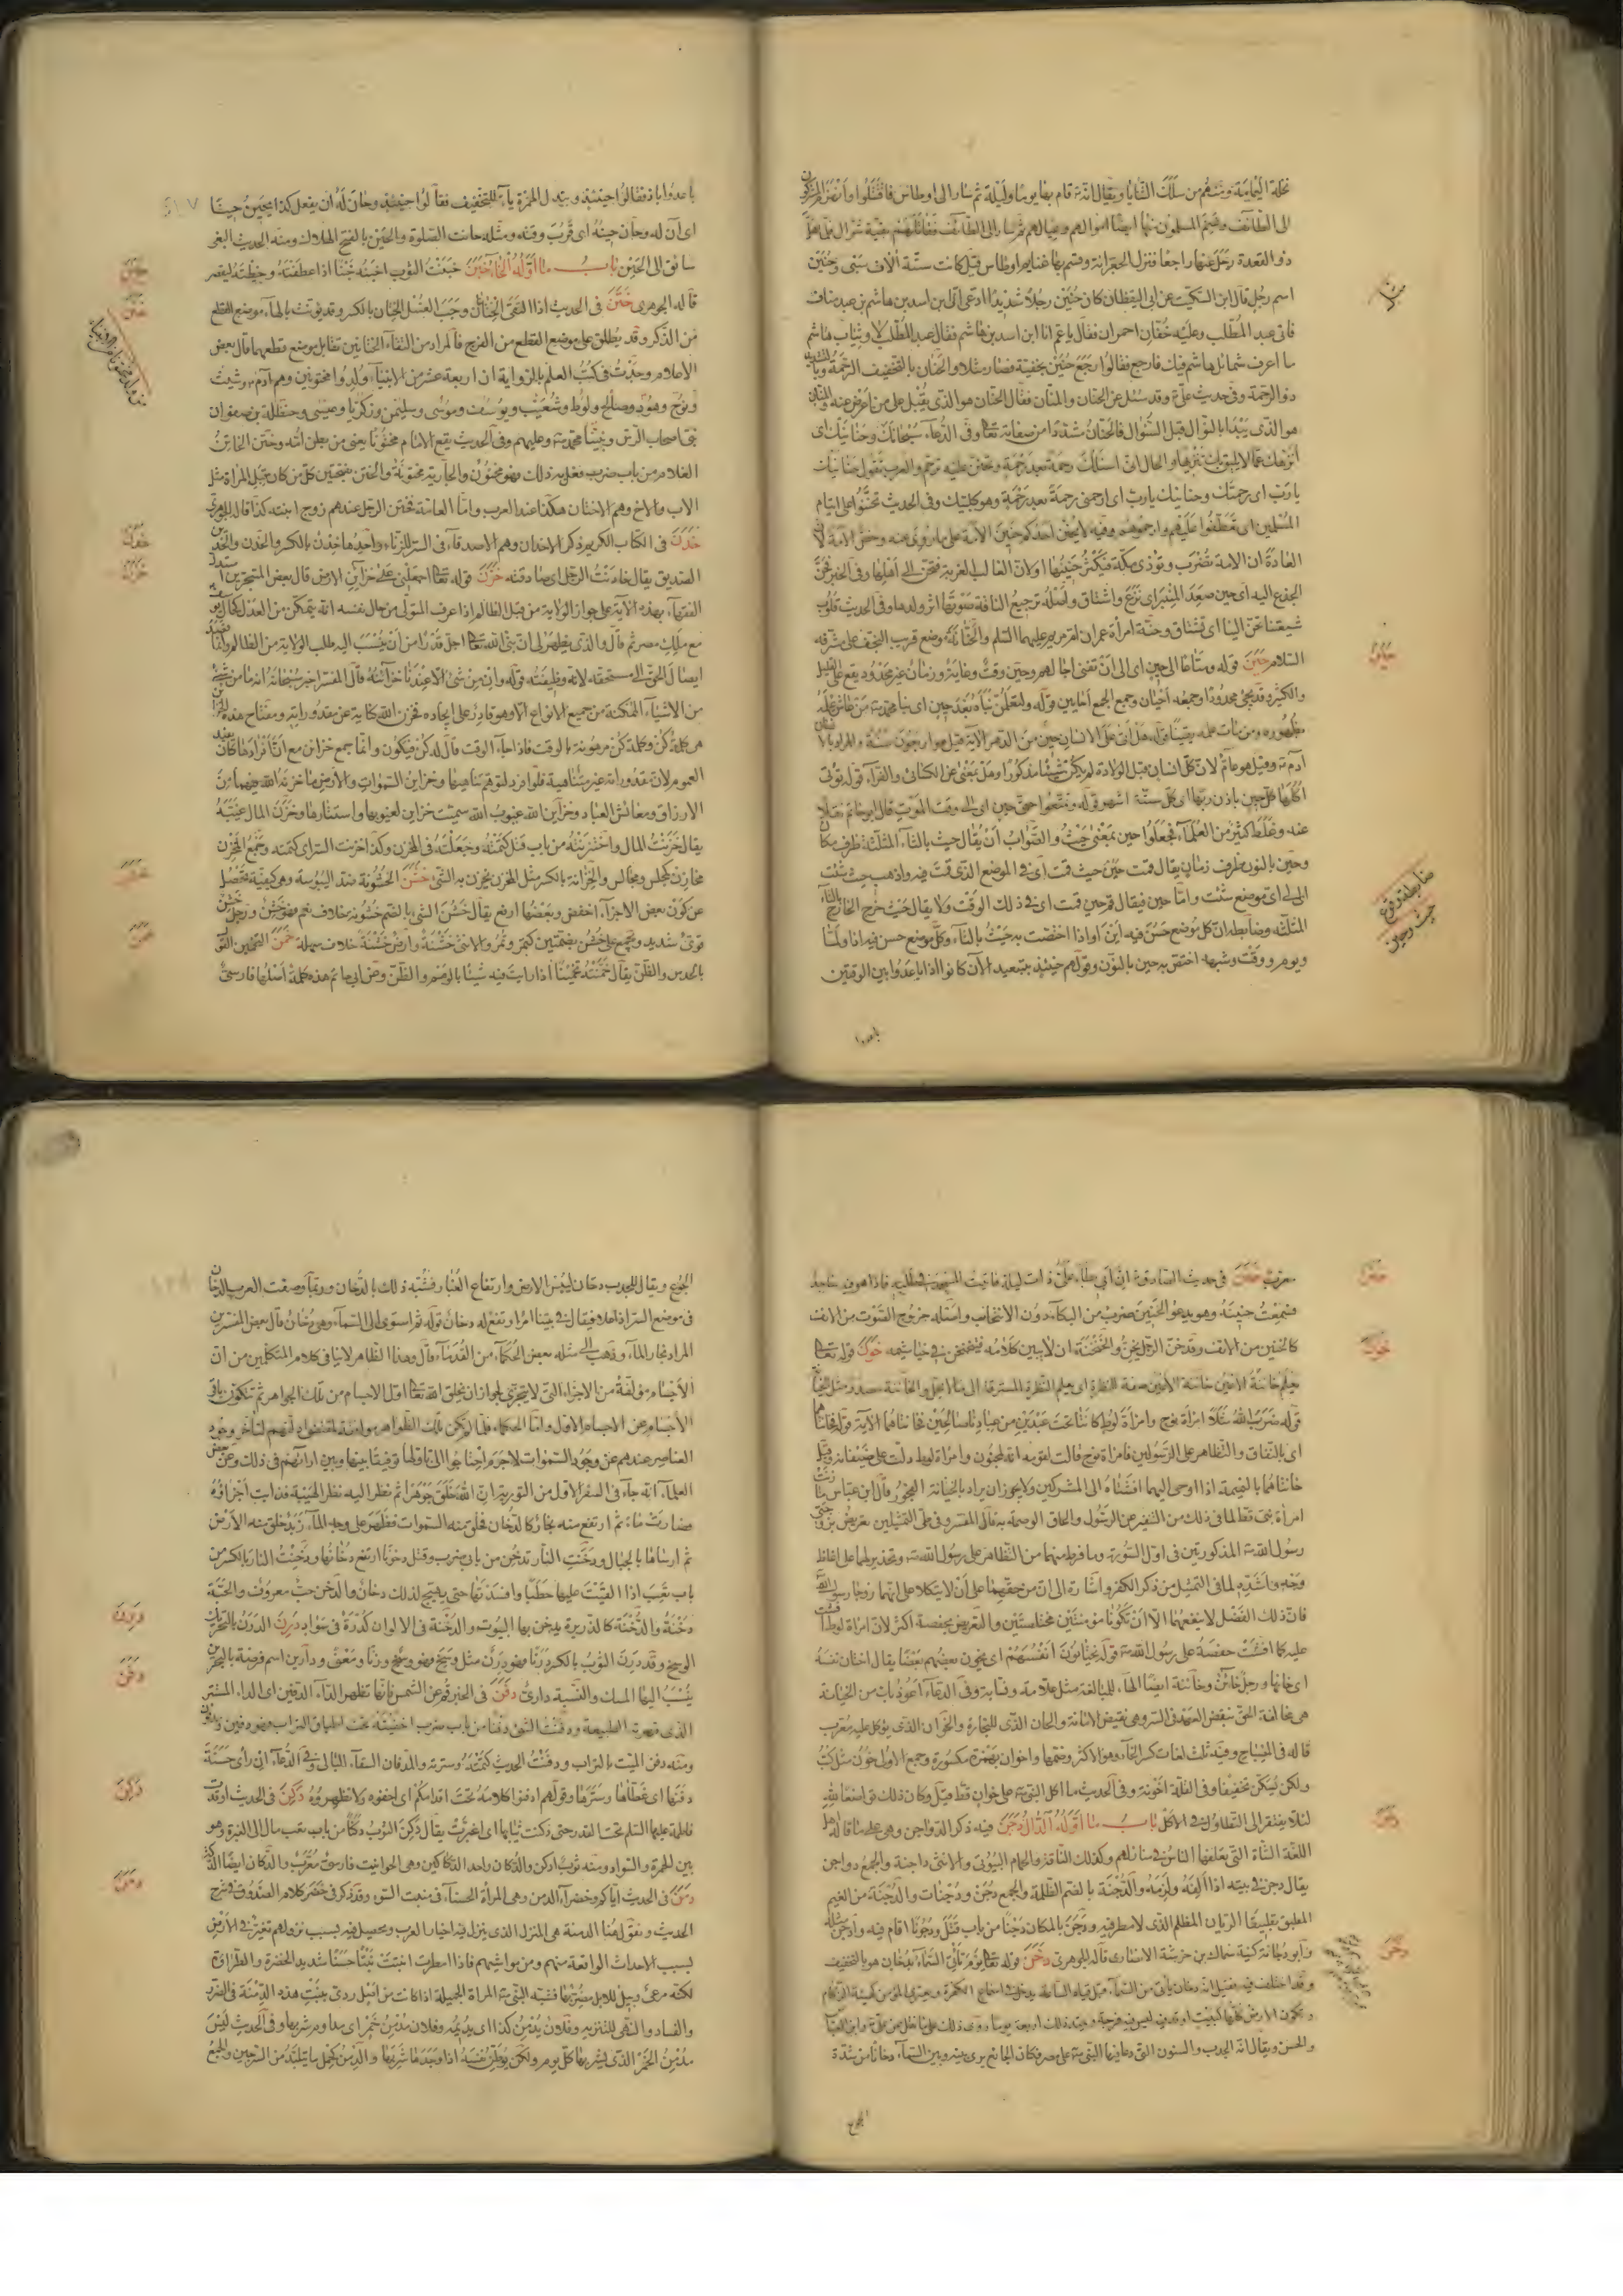 نخلة اليمانية ومنهم من سلك الثنايا ويقال انه قام بها يوما وليلة ثم سار الى اوطاس فاقتتلوا وانهزم المشركون
الى الطائف وغنم المسلمون منها ايضا اموالهم وعيالهم ثم سار الى الطائف فقاتلهم بقية شوال فلما هل
ذو القعدة رحل عنها راجعا فنزل الجعرانة وقسم بها غنايم اوطاس قيل كانت ستة الاف سبي وحنين
اسم رجل قال ابن السكيت عن ابي اليقظان كان حنين رجلا شديدا ادعى الى اسد بن هاشم بن عبد مناف
فاتى عبد المطلب وعليه خفان احمران فقال يا عم انا ابن اسد بن هاشم فقال عبد المطلب لا وثياب هاشم
ما اعرف شمائل هاشم فيك فارجع فقالوا رجع حنين بخفيه فصار مثلا والحنان بالتخفيف الرحمة وبالتشديد
ذو الرحمة وفي حديث علي وقد سئل عن الحنان والمنان فقال الحنان هو الذي يقبل على من اعرض عنه والمنان
هو الذي يبدا بالنوال قبل السؤال فالحنان مشددا من صفاته تعا وفي الدعاء سبحانك وحنانيك اى
انزهك عما لا يليق بك تنزيها والحال اني اسئلك رحمة بعد رحمة وتحنن عليه ترحم والعرب تقول حنانيك
يا رب اى رحمتك وحنانيك يا رب اى ارحمني رحمة بعد رحمة وهو كلبيك وفي الحديث تحننوا على ايتام
المسلمين اى تعطفوا عليهم وارحموهم وفيه لا يحنن احدكم حنين الامة على ما زوى عنه وخص الامة لان
العادة ان الامة تضرب وتؤذى فيكثر حنينها او لان الغالب الغربة فتحن الى اهلها وفي الخبر فحن
الجذع اليه اى حين صعد المنبر اى نزع واشتاق واصله ترجيع الناقة صوتها اثر ولدها وفي الحديث قلوب
شيعتنا تحن الينا اى تشتاق وحنة امراة عمران ام مريم عليهما السلم والحنانة موضع قريب النجف على مشرفه
السلام حين قوله ومتاعا الى حين اى الى ان تفنى اجالهم وحين وقت وغاية وزمان غير محدود يقع على القليل
والكثير وقد يجئ محدودا وجمعه احيان وجمع الجمع احايين قوله ولتعلمن نباه بعد حين اى نبا محمد من عاش علمه
بظهوره ومن مات علمه يقينا قوله هل اتى على الانسان حين من الدهر الاية قيل هو اربعون سنة والمراد بالانسان
آدم وقيل هو عام لان كل انسان قبل الولادة لم يكن شيئا مذكورا وهل بمعنى قد عن الكسائي والفراء قوله تؤتى
اكلها كل حين باذن ربها اى كل ستة اشهر قوله ومتعوا حتى حين اى الى وقت الموت قال ابو حاتم نقلا
عنه وغلط كثير من العلماء فجعلوا حين بمعنى حيث والصواب ان يقال حيث بالثاء المثلثة ظرف مكان
وحين بالنون ظرف زمان يقال قمت حيث قمت اى في الموضع الذي قمت فيه واذهب حيث شئت
اى الى اى موضع شئت واما حين فيقال قم حين قمت اى في ذلك الوقت ولا يقال حيث خرج الحاج بالثاء
المثلثة وضابطه ان كل موضع حسن فيه اين او اذا اختصت به حيث بالثاء وكل موضع حسن فيه اذا ولما
ويوم ووقت وشبهه اختص به حين بالنون وقولهم حينئذ بتبعيد الآن كانوا اذا باعدوا بين الوقتين
باعدوا
ضابطة وقوع حيث وحين
باعدوا باذ فقالوا حينئذ وتبدل الهمزة ياء للتخفيف فقالوا حينيذ وحان له ان يفعل كذا يحين حينا
اى آن له وحان حينه اى قرب وقته ومثله حانت الصلوة والحين بالفتح الهلاك ومنه الحديث البغي
سائق الى الحين باب ما اوله الخاء خبن خبنت الثوب اخبنه خبنا اذا عطفته وخطته ليقصر
قاله الجوهري ختن في الحديث اذا التقى الختانان وجب الغسل الختان بالكسر وقد يؤنث بالهاء موضع القطع
من الذكر وقد يطلق على موضع القطع من الفرج فالمراد من التقاء الختانين تقابل موضع قطعهما قال بعض
الاعلام وجدت في كتب العلم بالرواية ان اربعة عشر من الانبياء ولدوا مختونين وهم آدم وشيث
ونوح وهود وصالح ولوط وشعيب ويوسف وموسى وسليمن وزكريا وعيسى وحنظلة بن صفوان
نبي اصحاب الرس ونبينا محمد وعليهم وفي الحديث يقع الامام مختونا يعني من بطن امه وختن الخاتن
الغلام من باب ضرب فعل به ذلك فهو مختون والجارية مختونة والختن بفتحتين كل من كان قبل المراة مثل
الاب والاخ وهم الاختان هكذا عند العرب واما العامة فختن الرجل عندهم زوج ابنته كذا قال الجوهري
خدن في الكتاب الكريم ذكر الاخدان وهم الاصدقاء في السر للزناء واحدها خدن بالكسر والخدن والخدين
الصديق يقال خادنت الرجل اى صادقته خزن قوله تعا اجعلني على خزائن الارض قال بعض المتبحرين استدل
الفقهاء بهذه الآية على جواز الولاية من قبل الظالم اذا عرف المتولي من حال نفسه انه يتمكن من العدل كحال يوسف
مع ملك مصر ثم قال والذي يظهر لي ان نبي الله تعا اجل قدرا من ان ينسب اليه طلب الولاية من الظالم وانما قصد
ايصال الحق الى مستحقه لانه وظيفته قوله وان من شئ الا عندنا خزائنه قال المفسر اخبر سبحانه انه ما من شئ
من الاشياء الممكنة من جميع الانواع الا وهو قادر على ايجاده فخزن الله كناية عن مقدوراته ومفتاح هذه الخزائن
هي كلمة كن وكلمة كن مرهونة بالوقت فاذا جاء الوقت قال له كن فيكون وانما جمع خزائن مع ان افرادها كان يفيد
العموم لان مقدوراته غير متناهية فلو افرد لتوهم تناهيها وخزائن السموات والارض ما خزنه الله فيهما من
الارزاق ومعائش العباد وخزائن الله غيوب الله سميت خزائن لغيوبها واستتارها وخزن المال غيبه
يقال خزنت المال واختزنته من باب قتل كتمته وجعلته في المخزن وكذا خزنت السر اى كتمته وجمع المخزن
مخازن كمجلس ومجالس والخزانة بالكسر مثل المخزن يخزن به الشئ خشن الخشونة ضد اليبوسة وهي كيفية تحصل
عن كون بعض الاجزاء اخفض وبعضها ارفع يقال خشن الشئ بالضم خشونة بخلاف نعم فهو خشن ورجل خشن
قوى شديد ويجمع على خشن بضمتين كنمر ونمر والانثى خشنة وارض خشنة خلاف سهلة خمن التخمين القول
بالحدس والظن يقال خمنته تخمينا اذا رايت فيه شيئا بالوهم والظن وعن ابي حاتم هذه كلمة اصلها فارسي
خبن
ختن
خدن
خزن
خشن
خمن
معرب خنن في حديث الصادق ان ابي بطاء على ذات ليلة فاتيت المسجد في طلبه فاذا هو ساجد
فسمعت حنينه وهو يدعو الخنين ضرب من البكاء دون الانتحاب واصله خروج الصوت من الانف
كالحنين من الانف وقد خن الرجل يخن والخنخنة ان لا يبين كلامه فيخنخن في خياشيمه خون قوله تعا
يعلم خائنة الاعين خائنة الاعين صفة للنظرة اى يعلم النظرة المسترقة الى ما لا يحل والخائنة مصدر مثل الخيانة
قوله ضرب الله مثلا امراة نوح وامراة لوط كانتا تحت عبدين من عبادنا صالحين فخانتاهما الآية قوله فخانتاهما
اى بالنفاق والتظاهر على الرسولين فامراة نوح قالت لقومه انه لمجنون وامراة لوط دلت على ضيفانه وقيل
خانتاهما بالنميمة اذا اوحى اليهما افشتاه الى المشركين ولا يجوز ان يراد بالخيانة الفجور قال ابن عباس ما زنت
امراة نبي قط لما في ذلك من التنفير عن الرسول والحاق الوصمة به قال المفسر وفي طي التمثيلين تعريض بزوجتي
رسول الله المذكورتين في اول السورة وما فرط منهما من التظاهر على رسول الله وتحذير لهما على اغلظ
وجه واشده لما في التمثيل من ذكر الكفر واشارة الى ان من حقهما على ان لا يتكلا على انهما زوجا رسول الله
فان ذلك الفضل لا ينفعهما الا ان تكونا مؤمنتين مخلصتين والتعريض بحفصة اكثر لان امراة لوط افشت
عليه كما افشت حفصة على رسول الله قوله يختانون انفسهم اى يخون بعضهم بعضا يقال اختان نفسه
اى خانها ورجل خائن وخائنة ايضا الهاء للمبالغة مثل علامة ونسابة وفي الدعاء اعوذ بك من الخيانة
هي مخالفة الحق بنقض العهد في السر وهي نقيض الامانة والخان الذي للتجارة والخوان الذي يؤكل عليه معرب
قاله في المصباح وفيه ثلث لغات كسر الخاء وهو الاكثر وضمها واخوان بهمزة مكسورة وجمع الاول خون مثل كتب
ولكن ليسكن تخفيفا وفي القلة اخونة وفي الحديث ما اكل النبي على خوان قط قيل وكان ذلك تواضعا لله
لئلا يفتقر الى التطاول في الاكل باب ما اوله الدال دجن فيه ذكر الدواجن وهي على ما قاله اهل
اللغة الشاة التي يعلفها الناس في منازلهم وكذلك الناقة والحمام البيوتي والانثى داجنة والجمع دواجن
يقال دجن في بيته اذا الفه ولزمه والدجنة بالضم الظلمة والجمع دجن ودجنات والدجنة من الغيم
المطبق تطبيقا الريان المظلم الذي لا مطر فيه ودجن بالمكان دجنا من باب قتل ودجونا اقام فيه وادجن مثله
وابو دجانة كنية سماك بن خرشة الانصارى قاله الجوهري دخن قوله تعا يوم تاتي السماء بدخان هو بالتخفيف
وقد اختلف فيه فقيل انه دخان ياتي من السماء قبل قيام الساعة يدخل في اسماع الكفرة ويعترى المؤمن كهيئة الزكام
وتكون الارض كلها كبيت اوقد فيه ليس فيه فرجة ويمتد ذلك اربعين يوما وروى ذلك عن علي وابن عباس
والحسن ويقال انه الجدب والسنون التي دعا فيها النبي على مضر فكان الجائع يرى بينه وبين السماء دخانا من شدة
الجوع
خنن
خون
دجن
دخن
الجوع ويقال للجدب دخان ليبس الارض وارتفاع الغبار فشبه ذلك بالدخان وربما وضعت العرب الدخان
في موضع الشر اذا علا فيقال كان بيننا امر ارتفع له دخان قوله ثم استوى الى السماء وهي دخان قال بعض المفسرين
المراد بخار الماء وذهب الى مثله بعض الحكماء من القدماء قال وهذا الظاهر لا ينافي كلام المتكلمين من ان
الاجسام مؤلفة من الاجزاء التي لا تتجزى لجواز ان يخلق الله تعا اول الاجسام من تلك الجواهر ثم تتكون باقي
الاجسام عن الاجسام الاول واما الحكماء فلما لم يكن تلك الظواهر موافقة لمقتضى ادلتهم لتاخر وجود
العناصر عندهم عن وجود السموات لاجرم احتاجوا الى تاويلها توفيقا بينها وبين ارائهم في ذلك وعن بعض
العلماء انه جاء في السفر الاول من التورية ان الله خلق جوهرا ثم نظر اليه نظر الهيبة فذابت اجزاؤه
فصارت ماء ثم ارتفع منه بخار كالدخان فخلق منه السموات فظهر على وجه الماء زبد فخلق منه الارض
ثم ارساها بالجبال ودخنت النار تدخن من بابي ضرب وقتل دخونا ارتفع دخانها ودخنت النار بالكسر من
باب تعب اذا القيت عليها حطبا وافسدتها حتى يهيج لذلك دخان والدخن حب معروف والحبة
دخنة والدخنة كالذريرة يدخن بها البيوت والدخنة في الالوان كدرة في سواد درن الدرن بالتحريك
الوسخ وقد درن الثوب بالكسر درنا فهو درن مثل وسخ فهو وسخ وزنا ومعنى ودارين اسم فرضة بالبحرين
ينسب اليها المسك والنسبة دارى دفن في الخبر قم عن الشمس فانها تظهر الداء الدفين اى الداء المستتر
الذي قهرته الطبيعة ودفنت الشئ دفنا من باب ضرب اخفيته تحت اطباق التراب فهو دفين ومدفون
ومنه دفن الميت بالتراب ودفنت الحديث كتمته وسترته والمدفان السقاء البالي وفي الدعاء ان راى حسنة
دفنها اى غطاها وسترها وقولهم ادفنوا كلامه تحت اقدامكم اى اخفوه ولا تظهروه دكن في الحديث اوقدت
فاطمة عليها السلم تحت القدر حتى دكنت ثيابها اى اغبرت يقال دكن الثوب دكنا من باب تعب مال الى الغبرة وهو
بين الحمرة والسواد ومنه ثوب ادكن والدكان واحد الدكاكين وهي الحوانيت فارسي معرب والدكان ايضا الدكة
دمن في الحديث اياكم وخضراء الدمن وهي المراة الحسناء في منبت السوء وقد ذكر في خضر كلام الصدوق في شرح
الحديث ونقول هنا الدمنة هي المنزل الذي ينزل فيه اخيار العرب ويحصل فيه بسبب نزولهم تغير في الارض
بسبب الاحداث الواقعة منهم ومن مواشيهم فاذا امطرت انبتت نبتا حسنا شديد الخضرة والطراوة
لكنه مرعى وبيل للابل مضر بها فشبه النبي المراة الجميلة اذا كانت من اصل ردي بنبت هذه الدمنة في الضرر
والفساد والنهي للتنزيه وفلان يدمن كذا اى يديمه وفلان مدمن خمر اى مداوم شربها وفي الحديث ليس
مدمن الخمر الذي يشربها كل يوم ولكن يوطن نفسه اذا وجدها شربها والدمن كحمل ما يتلبد من السرجين والجمع
درن
دفن
دكن
دمن